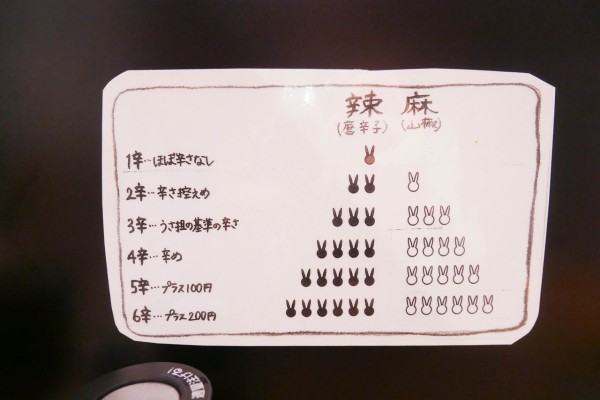 辣 麻
(唐辛子) (山椒)
1辛…ほぼ辛さなし
2辛…辛さ控えめ
3辛…うさ担の基準の辛さ
4辛…辛め
5辛…プラス100円
6辛…プラス200円